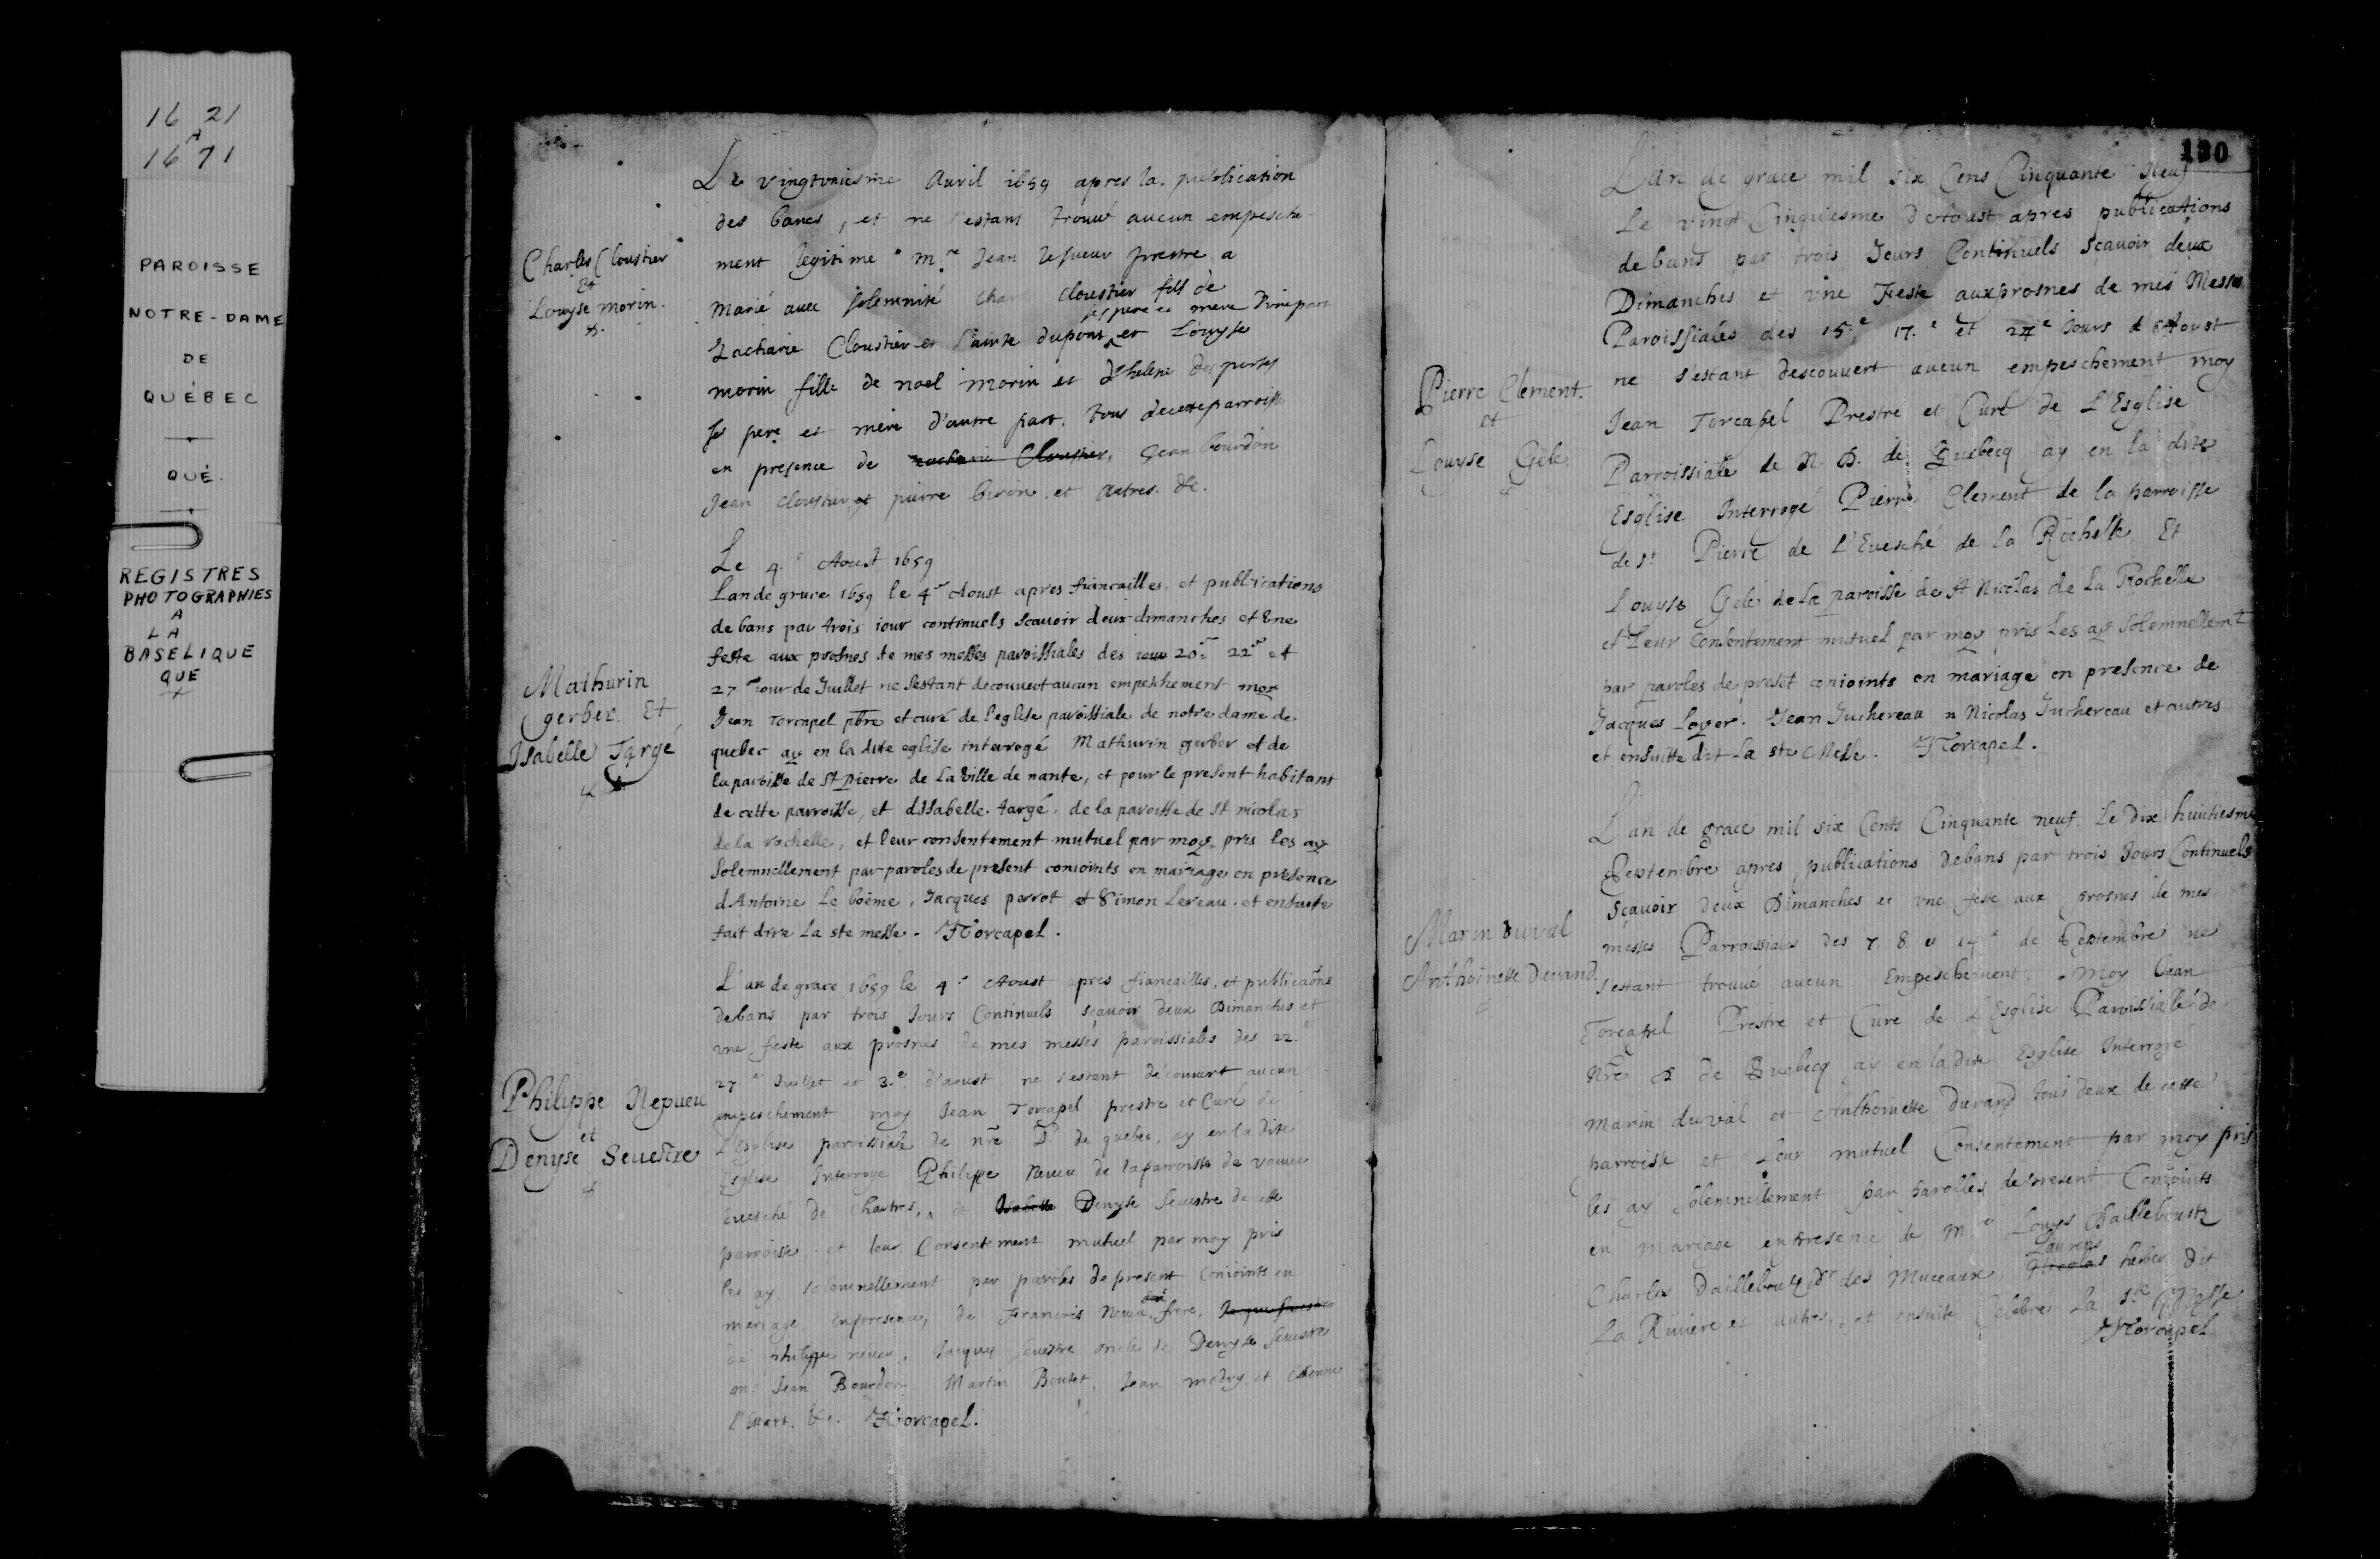 16 21
A
16 71
PAROISSE
NOTRE-DAME
DE
QUÉBEC
QUÉ.
REGISTRES
PHOTOGRAPHIES
A
LA
BASELIQUE
QUE
Charles Cloustier
Et
Louyse morin.
Le vingtuniesme Auril 1659 apres la publication
des bancs, et ne s'estant trouué aucun empesche-
ment legitime mre Jean lesueur prestre a
marié auec solemnité Charles Cloustier fils de
ses pere et mere d'une part
Zacharie Cloustier et Sainte dupont et Louyse
morin fille de noel morin et d'helene desportes
ses pere et mere d'autre part. tous de cette parroisse
en presence de zacharie Cloustier, Jean bourdon
Jean cloustier, et pierre biron et autres. &c.
Mathurin
gerber. Et
Isabelle Targé
Le 4.e Aoust 1659
Lan de grace 1659 le 4e Aoust apres fiancailles, et publications
de bans par trois iour continuels scauoir deux dimanches et Vne
feste aux prosnes de mes messes paroissiales des iour 20.e 22e et
27e iour de Juillet ne sestant decouuert aucun empeschement moy
Jean Torcapel pbre et curé de l'eglise paroissiale de notre dame de
quebec ay en la dite eglise interrogé Mathurin gerber et de
la paroisse de St pierre de la Ville de nante, et pour le present habitant
de cette parroisse, et dIsabelle targé. de la paroisse de St nicolas
de la rochelle, et leur consentement mutuel par moy pris les ay
Solemnellement par paroles de present conioints en mariage en presence
dAntoine Le boëme, Jacques perrot et Simon Lereau. et ensuite
fait dire la ste messe. JTorcapel.
Philippe Nepueu
et
Denyse Seuestre
L'an de grace 1659 le 4.e Aoust apres fiançailles, et publicaõns
de bans par trois Jours Continuels sçauoir deux Dimanches et
vne feste aux prosnes de mes messes paroissiales des 22.e
27.e Juillet et 3.e d'aoust. ne s'estant découuert aucun
empeschement moy Jean Torcapel prestre et Curé de
L'Esglise paroissiale de nre D. de quebec, ay en la dite
Esglise Interrogé Philippe Neueu de la parroisse de
Euesché de Chartres, et Isabelle Denyse Seuestre de cette
parroisse, et leur Consentement mutuel par moy pris
les ay solemnellement par paroles de present Conioints en
mariage. En presence, de Francois Neueu frere,
de philippe neueu, Jacques Seuestre oncle de Denyse Seuestre
mr Jean Bourdon, Martin Boutet, Jean madry, et Estienne
l'Etart. &c. JTorcapel.
130
Pierre Clement.
et
Louyse Gelé.
L'An de grace mil six Cens Cinquante Neuf
Le vingt Cinquiesme d'Aoust apres publications
de bans par trois Jours Continuels sçauoir deux
Dimanches et vne Feste aux prosnes de mes Messes
Paroissiales des 15.e 17.e et 24e Jours d'Aoust
ne s'estant descouuert aucun empeschement moy
Jean Torcapel Prestre et Curé de L'Esglise
Parroissiale de N. D. de Quebecq ay en la dite
Esglise Interrogé Pierre Clement de la parroisse
de St. Pierre de L'Euesché de la Rochelle Et
Louyse Gelé de la paroisse de St Nicolas de La Rochelle
et Leur Consentement mutuel par moy pris Les ay Solemnellemt
par paroles de preset conioints en mariage en presence de
Jacques Loyer. Jean Juchereau Nicolas Juchereau et autres
et ensuitte dit la ste Messe. JTorcapel.
Marin duval
Anthoinette Durand.
L'an de grace mil six Cents Cinquante neuf. Le Dix huictiesme
Septembre apres publications de bans par trois Jours Continuels
Sçauoir deux Dimanches et vne feste aux prosnes de mes
messes Parroissiales des 7. 8. et 14e de Septembre ne
s'estant trouué aucun Empeschement. Moy Jean
Torcapel Prestre et Curé de L'Esglise Paroissiale de
Nre D de Quebecq ay en la dite Esglise Interrogé
Marin duval et Anthoinette Durand tous deux de cette
parroisse et Leur mutuel Consentement par moy pris
les ay solemnellement par parolles de present Conioints
en Mariage en presence de, Mr Louys Dailleboustz
Laurens
Charles Dailleboutz Sr des Muceaux, Nicolas herber dit
La Riuiere et autres, et ensuite Celebré La Ste Messe
JTorcapel